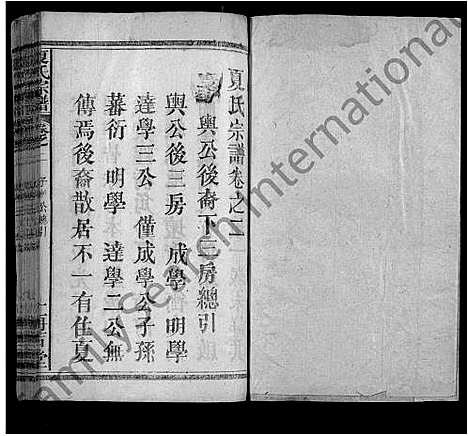 夏氏宗譜卷之二
輿公後裔下三房總引
輿公後三房 成學 明學
達學三公 僅成學公子孫
蕃衍 明學 達學二公無
傳焉後裔散居不一有任夏
夏氏宗譜
卷之二
FamilySearch International